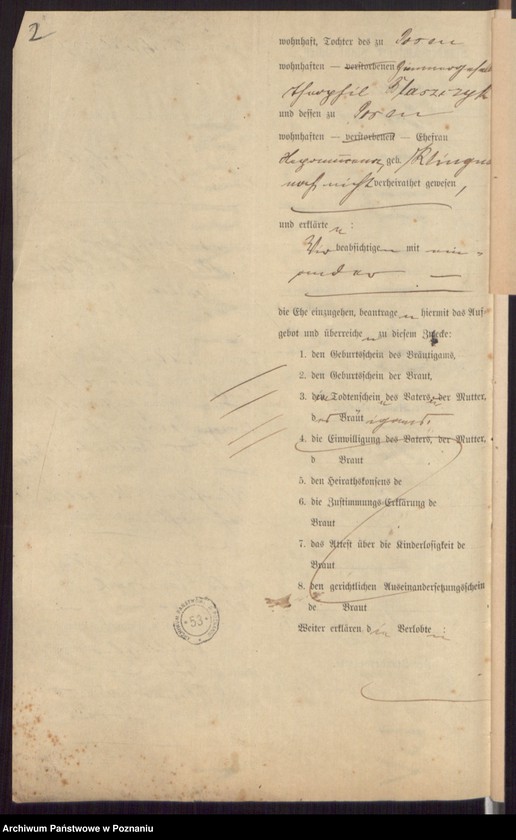 2
wohnhaft, Tochter des zu Posen
wohnhaften — verstorbenen
Theophil Blaszczyk
und dessen zu Posen
wohnhaften — verstorbenen — Ehefrau
geb. Klinge
noch nicht verheirathet gewesen,
und erklärten:
Wir beabsichtigen mit ein-
ander —
die Ehe einzugehen, beantragen hiermit das Auf-
gebot und überreichen zu diesem Zwecke:
1. den Geburtsschein des Bräutigams,
2. den Geburtsschein der Braut,
3. die Todtenscheine des Vaters, der Mutter,
des Bräutigams.
4. die Einwilligung des Vaters, der Mutter,
d Braut
5. den Heirathskonsens de
6. die Zustimmungs-Erklärung de
Braut
7. das Attest über die Kinderlosigkeit de
Braut
8. den gerichtlichen Auseinandersetzungsschein
de Braut
Weiter erklären die Verlobten:
53
Archiwum Państwowe w Poznaniu